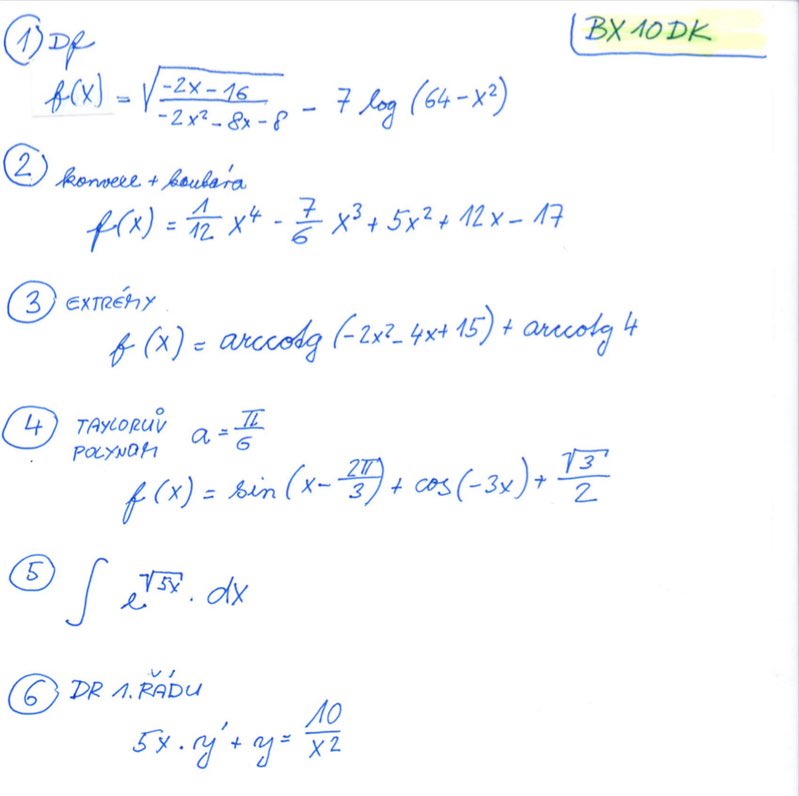 BX10DK
① Df
f(x) = √((-2x-16)/(-2x²-8x-8)) - 7 log (64-x²)
② konvexe + konkáva
f(x) = 1/12 x⁴ - 7/6 x³ + 5x² + 12x - 17
③ EXTRÉMY
f(x) = arccotg (-2x²-4x+15) + arccotg 4
④ TAYLORŮV a = π/6
POLYNOM
f(x) = sin (x - 2π/3) + cos(-3x) + √3/2
⑤ ∫ e^√5x . dx
⑥ DR 1. ŘÁDU
5x . y' + y = 10/x2